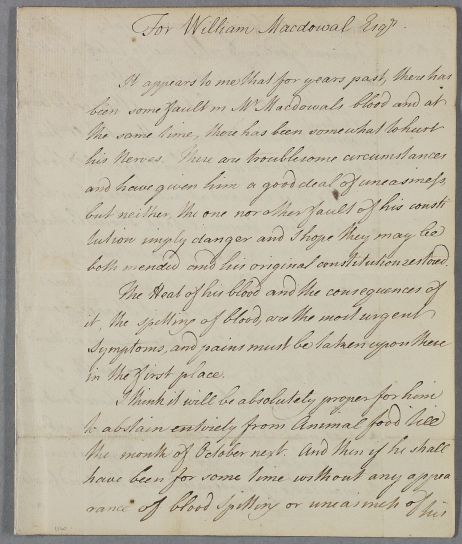 For William Macdowal Esqr.
It appears to me that for years past, there has
been some fault in Mr Macdowals blood and at
the same time, there has been somewhat to hurt
his Nerves. These are troublesome circumstances
and have given him a good deal of uneasiness,
but neither, the one nor other fault of his consti
tution imply danger and I hope they may be
both mended and his original constitution restored.
The Heat of his blood and the consequences of
it, the spitting of blood, are the most urgent
Symptoms, and pains must be taken upon these
in the first place.
I think it will be absolutely proper for him
to abstain entirely from Animal food till
the month of October next. And then if he shall
have been for some time without any appea
rance of blood spitting or uneasiness of his